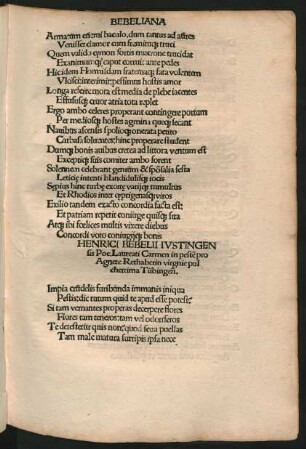 BEBELIANA
Armatum est em̄ baculo, dum tantus ad astres
Venisset clamor cum fremituq; truci
Quem valido eymon fortis mucrone trucidat
Exanimum q; caput corruit ante pedes
Hic idem Hormisdam fratremq; fata volentem
Vlcisci interimit: pessimus hostis amor
Longa referre mora est media de plebe iacentes
Effususq; cruor atria tota replet
Ergo ambo celeres properant contingere portum
Per mediosq; hostes agmina queq; secant
Nauibus ascensis spolioq; onerata petito
Carbasa soluentes; hinc properare student
Dumq; bonis auibus creta ad littora ventum est
Exceptiq; suis comiter ambo forent
Solennem celebrant genium & sponsalia festa
Leticie intenti blandidulisq; iocis
Sepius hinc turbe exorte varijq; tumultus
Et Rhodios inter cyprigenasq; viros
Exilio tandem exacto concordia facta est;
Et patriam repetit coniuge quisq; sua
Atq; ibi foelices multis vixere diebus
Concordi voto contingijsq; bonis
HENRICI BEBELII IVSTINGEN
sis Poe. Laureati Carmen in pestē pro
Agnete Rethaberin virgine pul
cherrima Tübingeñ.
Impia crudelis furibunda immanis iniqua
Pestis: dic tutum quid te apud esse potest;
Si tam vernantes properas decerpere flores
Flores tam teneros: tam vel odoriferos
Te detestetur quis non; quod seua puellas
Tam male matura surripis ipsa nece